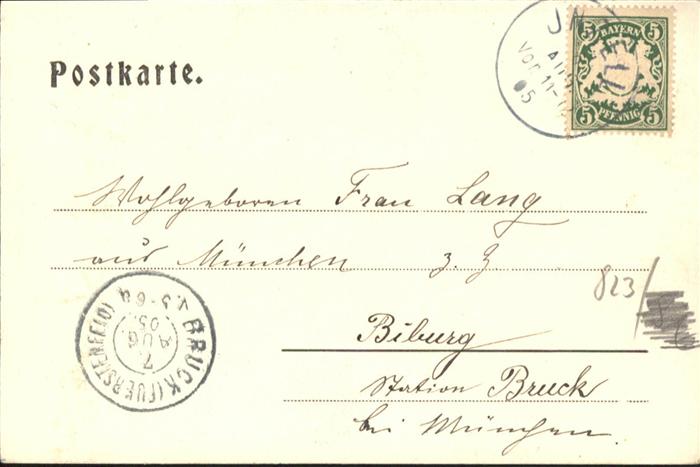 Postkarte.
BAYERN
5 5
5 PFENNIG 5
Vor 11-
05
Wohlgeboren Frau Lang
aus München z. Z.
Biburg
Station Bruck
bei München.
823/
BRUCK (FUERSTENFELD)
7
AUG
05.
V. 5-6